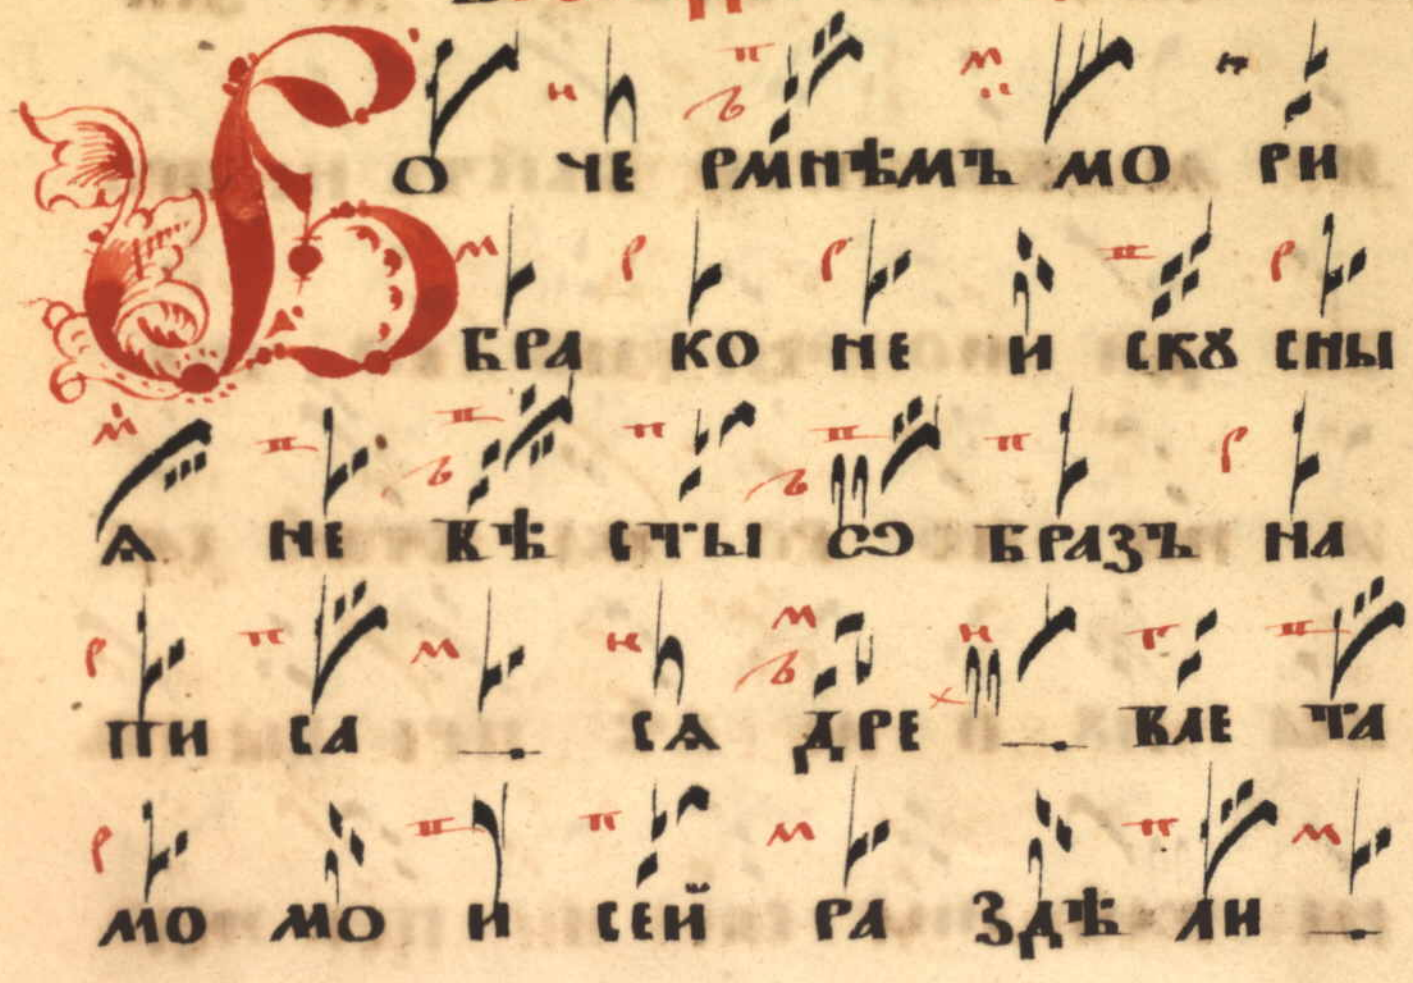 Во че рмнѣмъ мо ри
бра ко не и скꙋ сны
ѧ не вѣ сты ѡ бразъ на
пи са сѧ дре вле та
мо мо и сей ра здѣ ли